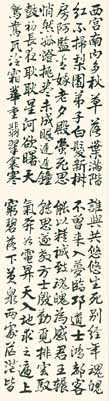 西宮南內多秋草落葉滿階
紅不掃梨園弟子白髮新椒
房阿監青娥老夕殿螢飛思
悄然孤燈挑盡未成眠遲遲鐘
鼓初長夜耿耿星河欲曙天
鴛鴦瓦冷霜華重翡翠衾寒
誰與共悠悠生死別經年魂魄
不曾來入夢臨邛道士鴻都客
能以精誠致魂魄為感君王輾
轉思遂教方士殷勤覓排空馭
氣奔如電昇天入地求之遍上
窮碧落下黃泉兩處茫茫皆